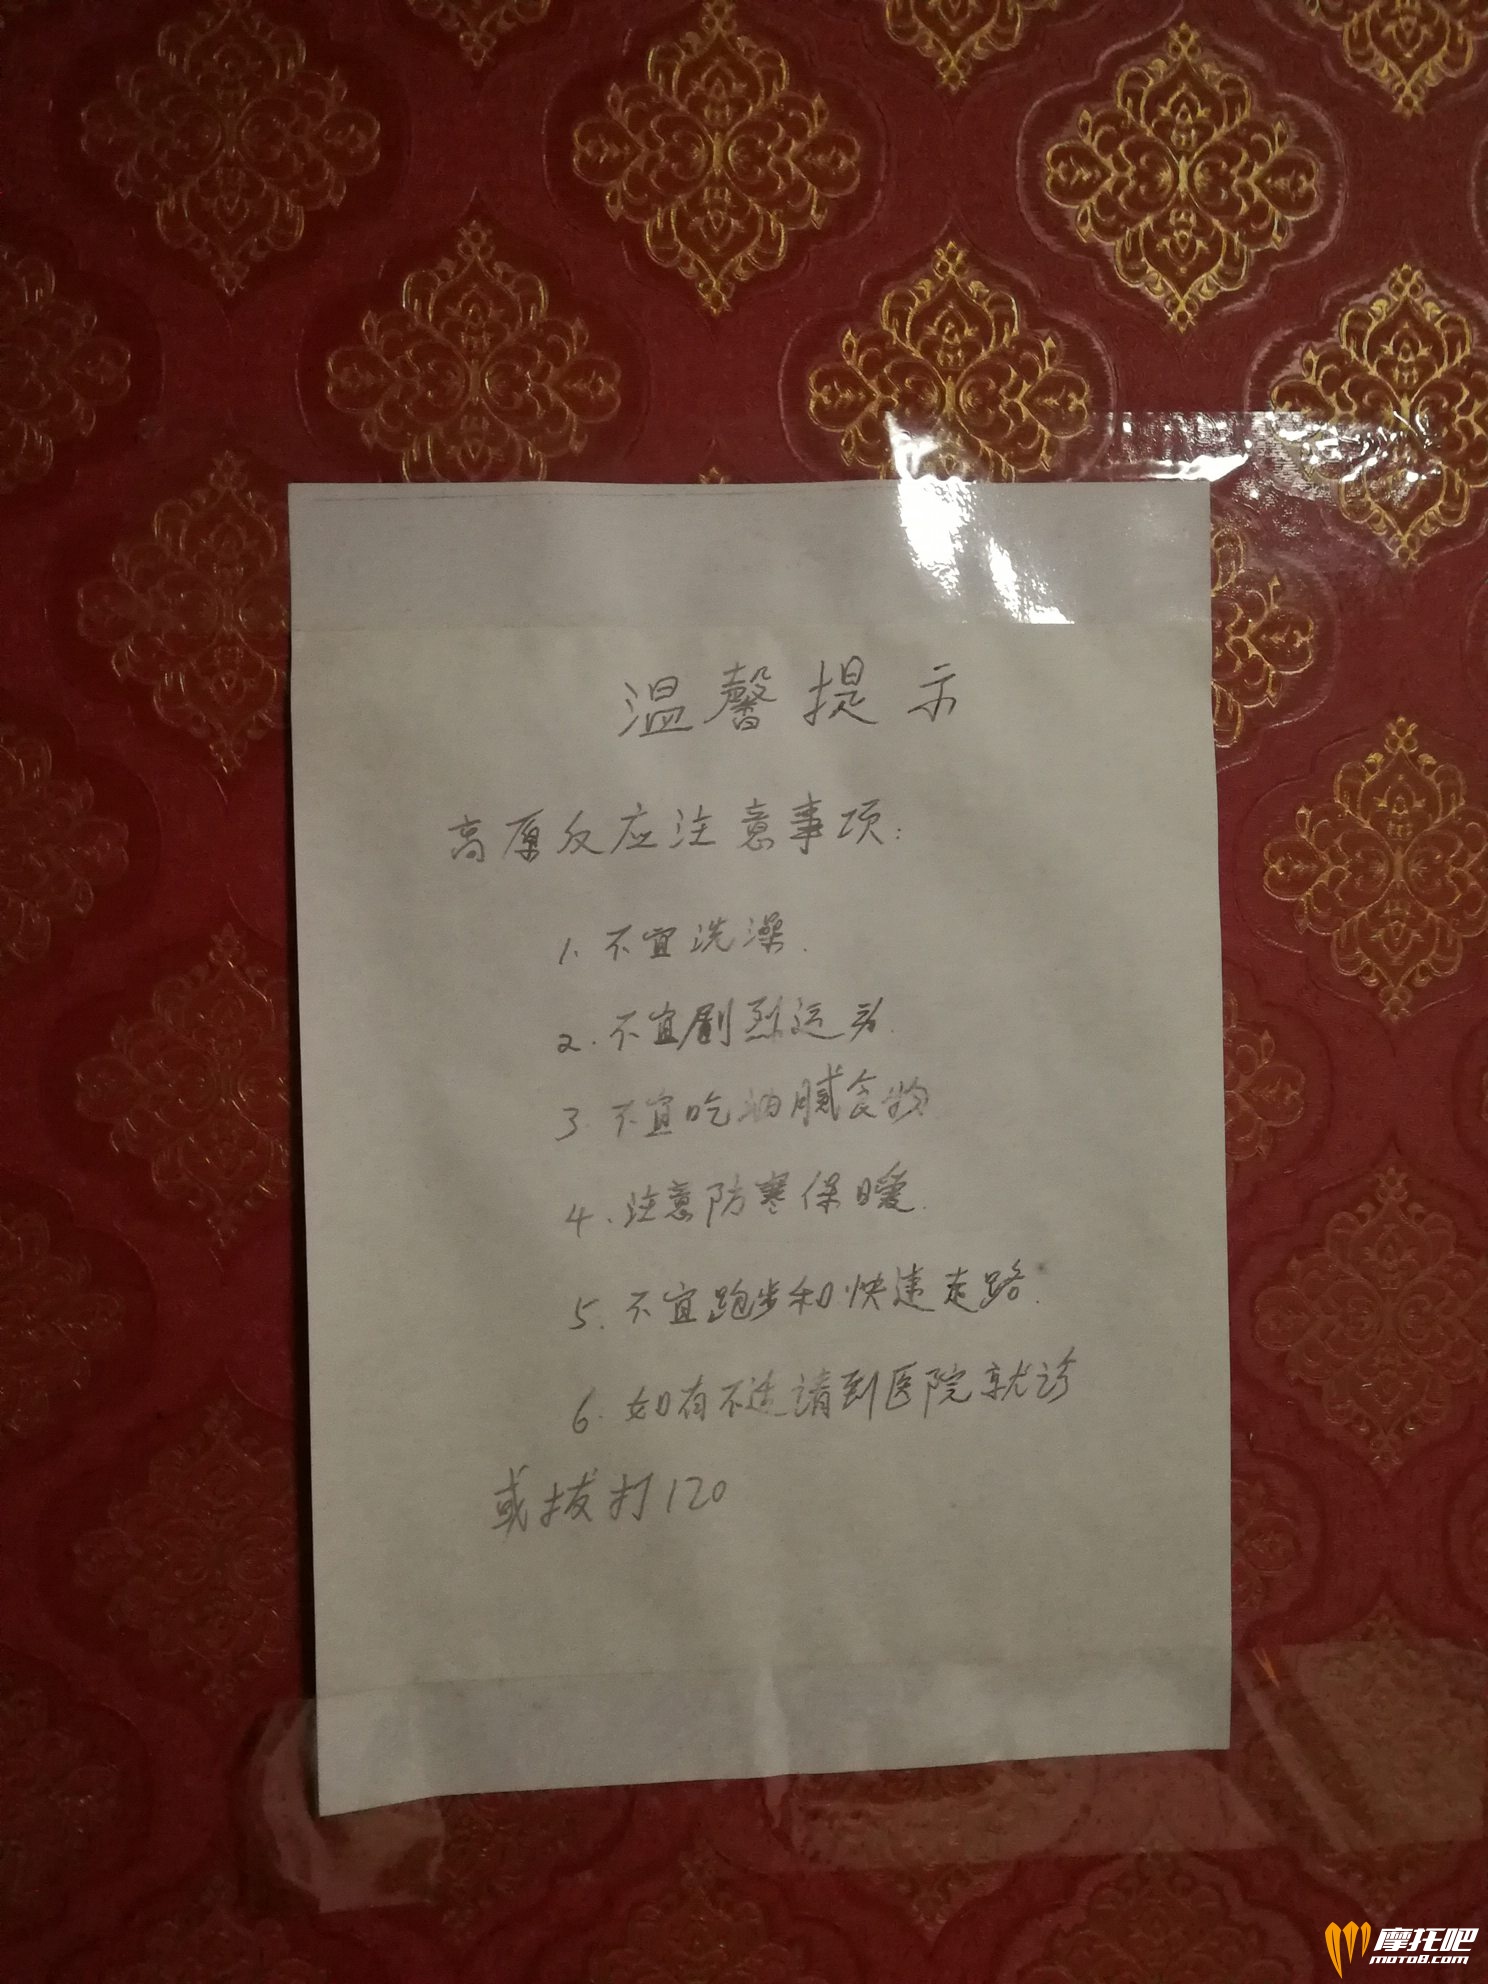 温馨提示
高原反应注意事项:
1. 不宜洗澡.
2. 不宜剧烈运动.
3. 不宜吃油腻食物
4. 注意防寒保暖.
5. 不宜跑步和快速走路.
6. 如有不适请到医院就诊
或拔打120
摩托吧
MOTO8.COM